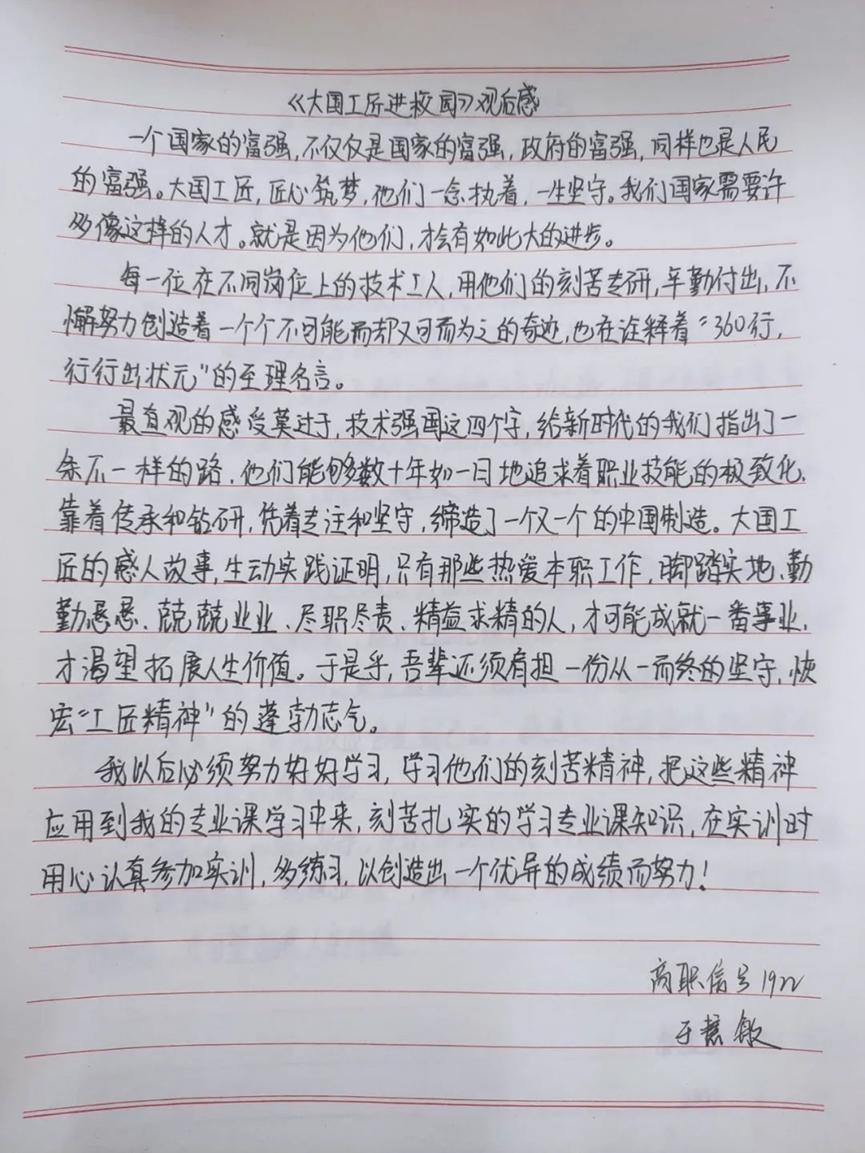 《大国工匠进校园》观后感
一个国家的富强,不仅仅是国家的富强,政府的富强,同样也是人民
的富强。大国工匠,匠心筑梦,他们一念执着,一生坚守。我们国家需要许
多像这样的人才。就是因为他们,才会有如此大的进步。
每一位在不同岗位上的技术工人,用他们的刻苦专研,辛勤付出,不
懈努力创造着一个个不可能而却又可而为之的奇迹,也在诠释着“360行,
行行出状元”的至理名言。
最直观的感受莫过于,技术强国这四个字,给新时代的我们指出了一
条不一样的路.他们能够数十年如一日地追求着职业技能的极致化,
靠着传承和钻研,凭着专注和坚守,缔造了一个又一个的中国制造。大国工
匠的感人故事,生动实践证明,只有那些热爱本职工作,脚踏实地、勤
勤恳恳、兢兢业业、尽职尽责、精益求精的人,才可能成就一番事业,
才渴望拓展人生价值。于是乎,吾辈还须有担一份从一而终的坚守,恢
宏“工匠精神”的蓬勃志气。
我以后必须努力好好学习,学习他们的刻苦精神,把这些精神
应用到我的专业课学习中来,刻苦扎实的学习专业课知识,在实训时
用心认真参加实训,多练习,以创造出一个优异的成绩而努力!
商职信号1922
于慧敏